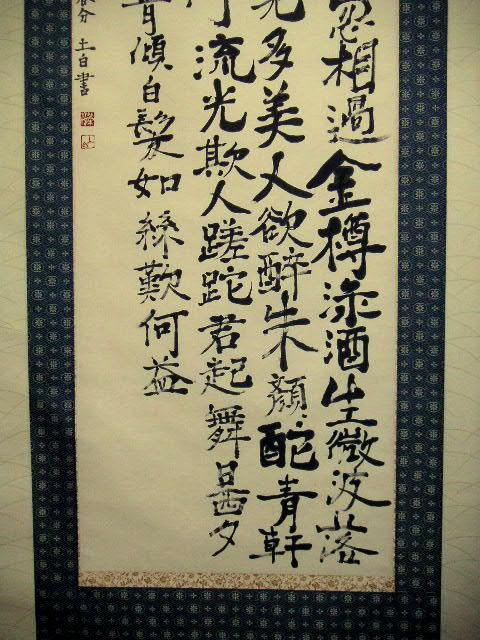 忽相過金樽渌酒生微波落
多美人欲醉朱顏酡青軒
流光欺人蹉跎君起舞日西夕
肯傾白髮如絲歎何益
土白書